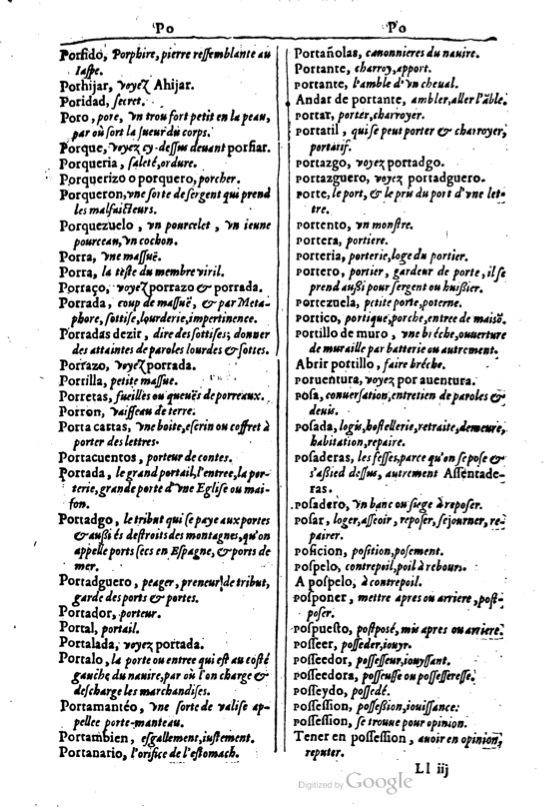 Po
Porfido, Porphire, pierre ressemblante au
Iaspe.
Porhijar, voyez Ahijar.
Poridad, secret.
Poro, pore, vn trou fort petit en la peau,
par où sort la sueur du corps.
Porque, voyez cy-dessus deuant porfiar.
Porqueria, saleté, ordure.
Porquerizo o porquero, porcher.
Porqueron, vne sorte de sergent qui prend
les malfaicteurs.
Porquezuelo, vn pourcelet, vn ieune
pourceau, vn cochon.
Porra, vne massuë.
Porra, la teste du membre viril.
Portaço, voyez porrazo & porrada.
Porrada, coup de massuë, & par Meta-
phore, sottise, lourderie, impertinence.
Porradas dezir, dire des sottises; donner
des attaintes de paroles lourdes & sottes.
Porrazo, voyez porrada.
Porrilla, petite massue.
Porretas, fueilles ou queuës de porreaux.
Porron, vaisseau de terre.
Porta cartas, vne boite, escrin ou coffret à
porter des lettres.
Portacuentos, porteur de contes.
Portada, le grand portail, l'entree, la por-
terie, grande porte d'vne Eglise ou mai-
son.
Portadgo, le tribut qui se paye aux portes
& aussi és destroits des montagnes, qu'on
appelle ports secs en Espagne, & ports de
mer.
Portadguero, peager, preneur de tribut,
garde des ports & portes.
Portador, porteur.
Portal, portail.
Portalada, voyez portada.
Portalo, la porte ou entree qui est au costé
gauche du nauire, par où l'on charge &
descharge les marchandises.
Portamantéo, vne sorte de valise ap-
pellee porte-manteau.
Portambien, esgallement, iustement.
Portanario, l'orifice de l'estomach.
Po
Portañolas, canonnieres du nauire.
Portante, charroy, apport.
Portante, l'amble d'vn cheual.
Andar de portante, ambler, aller l'āble.
Portar, porter, charroyer.
Portatil, qui se peut porter & charroyer,
portatif.
Portazgo, voyez portadgo.
Portazguero, voyez portadguero.
Porte, le port, & le prix du port d'vne let-
tre.
Portento, vn monstre.
Portera, portiere.
Porteria, porterie, loge du portier.
Portero, portier, gardeur de porte, il se
prend aussi pour sergent ou huissier.
Portezuela, petite porte, poterne.
Portico, portique, porche, entree de maisō.
Portillo de muro, vne bréche, ouuerture
de muraille par batterie ou autrement.
Abrir portillo, faire bréche.
Poruentura, voyez por auentura.
Posa, conuersation, entretien de paroles &
deuis.
Posada, logis, hostellerie, retraite, demeure,
habitation, repaire.
Posaderas, les fesses, parce qu'on se pose &
s'assied dessus, autrement Assentade-
ras.
Posadero, vn banc ou siege à reposer.
Posar, loger, asseoir, reposer, sejourner, re-
pairer.
Posicion, position, posement.
Pospelo, contrepoil, poil à rebours.
A pospelo, à contrepoil.
Posponer, mettre apres ou arriere, post-
poser.
Pospuesto, postposé, mis apres ou arriere.
Posseer, posseder, iouyr.
Posseedor, possesseur, iouyssant.
Posseedora, possessuse ou possesseresse.
Posseydo, possedé.
Possession, possession, iouissance:
Possession, se trouue pour opinion.
Tener en possession, auoir en opinion,
reputer.
Ll iij
Digitized by Google